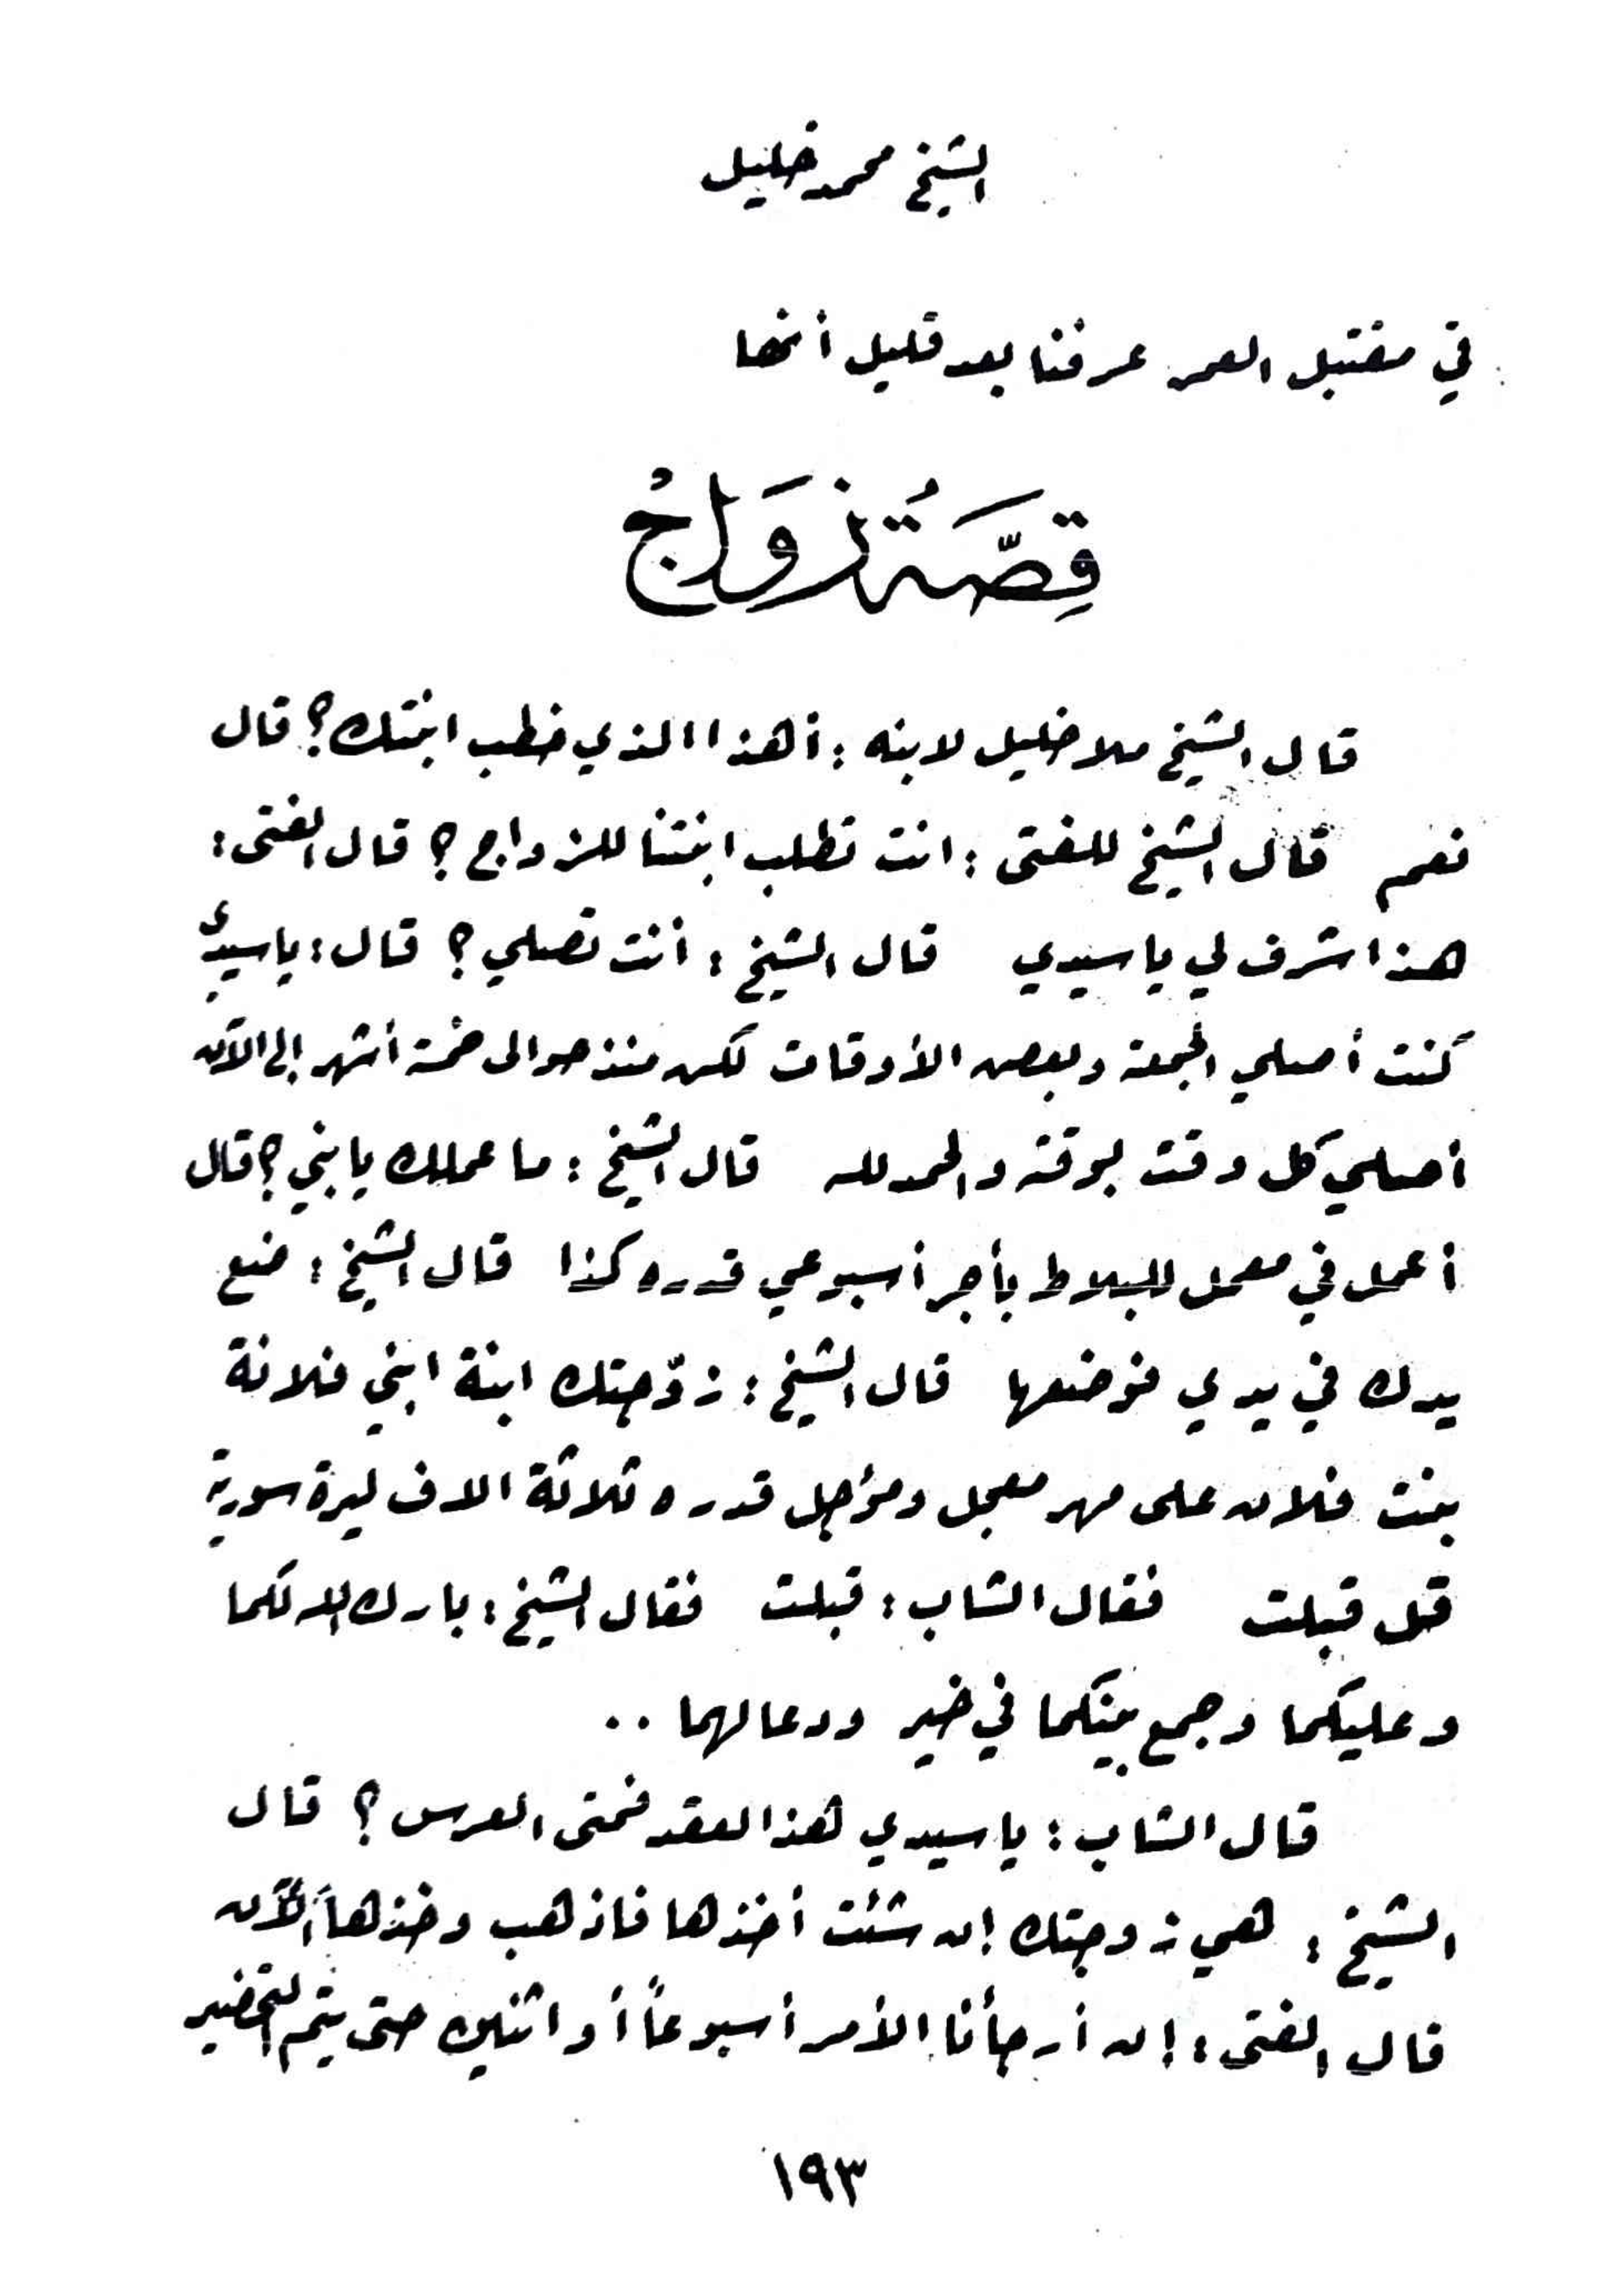 الشيخ محمد خليل
في مقتبل العمر عرفنا بعد قليل أنها
قِصَّةُ زَوَاجْ
قال الشيخ ملا خليل لابنه : أهذا الذي خطب ابنتك ؟ قال
نعم قال الشيخ للفتى : انت تطلب ابنتنا للزواج ؟ قال الفتى :
هذا شرف لي يا سيدي قال الشيخ : أنت تصلي ؟ قال : يا سيدي
كنت أصلي الجمعة وبعض الأوقات لكن منذ حوالى خمسة أشهر إلى الآن
أصلي كل وقت بوقته والحمد لله قال الشيخ : ما عملك يا بني ؟ قال
أعمل في معمل للبلاط بأجر أسبوعي قدره كذا قال الشيخ : ضع
يدك في يدي فوضعها قال الشيخ : زوّجتك ابنة ابني فلانة
بنت فلان على مهر معجل ومؤجل قدره ثلاثة الاف ليرة سورية
قل قبلت فقال الشاب : قبلت فقال الشيخ : بارك الله لكما
وعليكما وجمع بينكما في خير ودعا لهما ..
قال الشاب : يا سيدي هذا العقد فمتى العرس ؟ قال
الشيخ : هي زوجتك إن شئت أخذها فاذهب وخذها الآن
قال الفتى : إن أرجأنا الأمر أسبوعاً أو اثنين حتى يتم التحضير
١٩٣